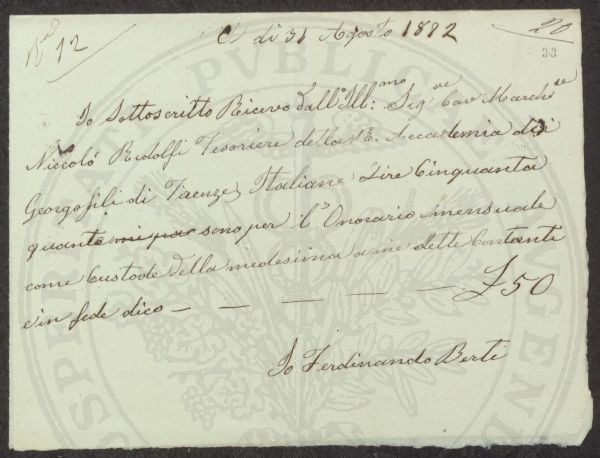 N.º 12
A dì 31 Agosto 1872
20
33
Io Sottoscritto Ricevo dall' Ill:mo Sig.re Cav March.se
Niccolò Ridolfi Tesoriere della R. Accademia dei
Georgofili di Firenze, Italiane Lire Cinquanta
quante mi par sono per l'Onorario mensuale
come Custode della medesima a me dette Contanti
e in fede dico — — — — — £ 50
Io Ferdinando Berti
PVBLICAE
PROSPERITATI AVGENDAE